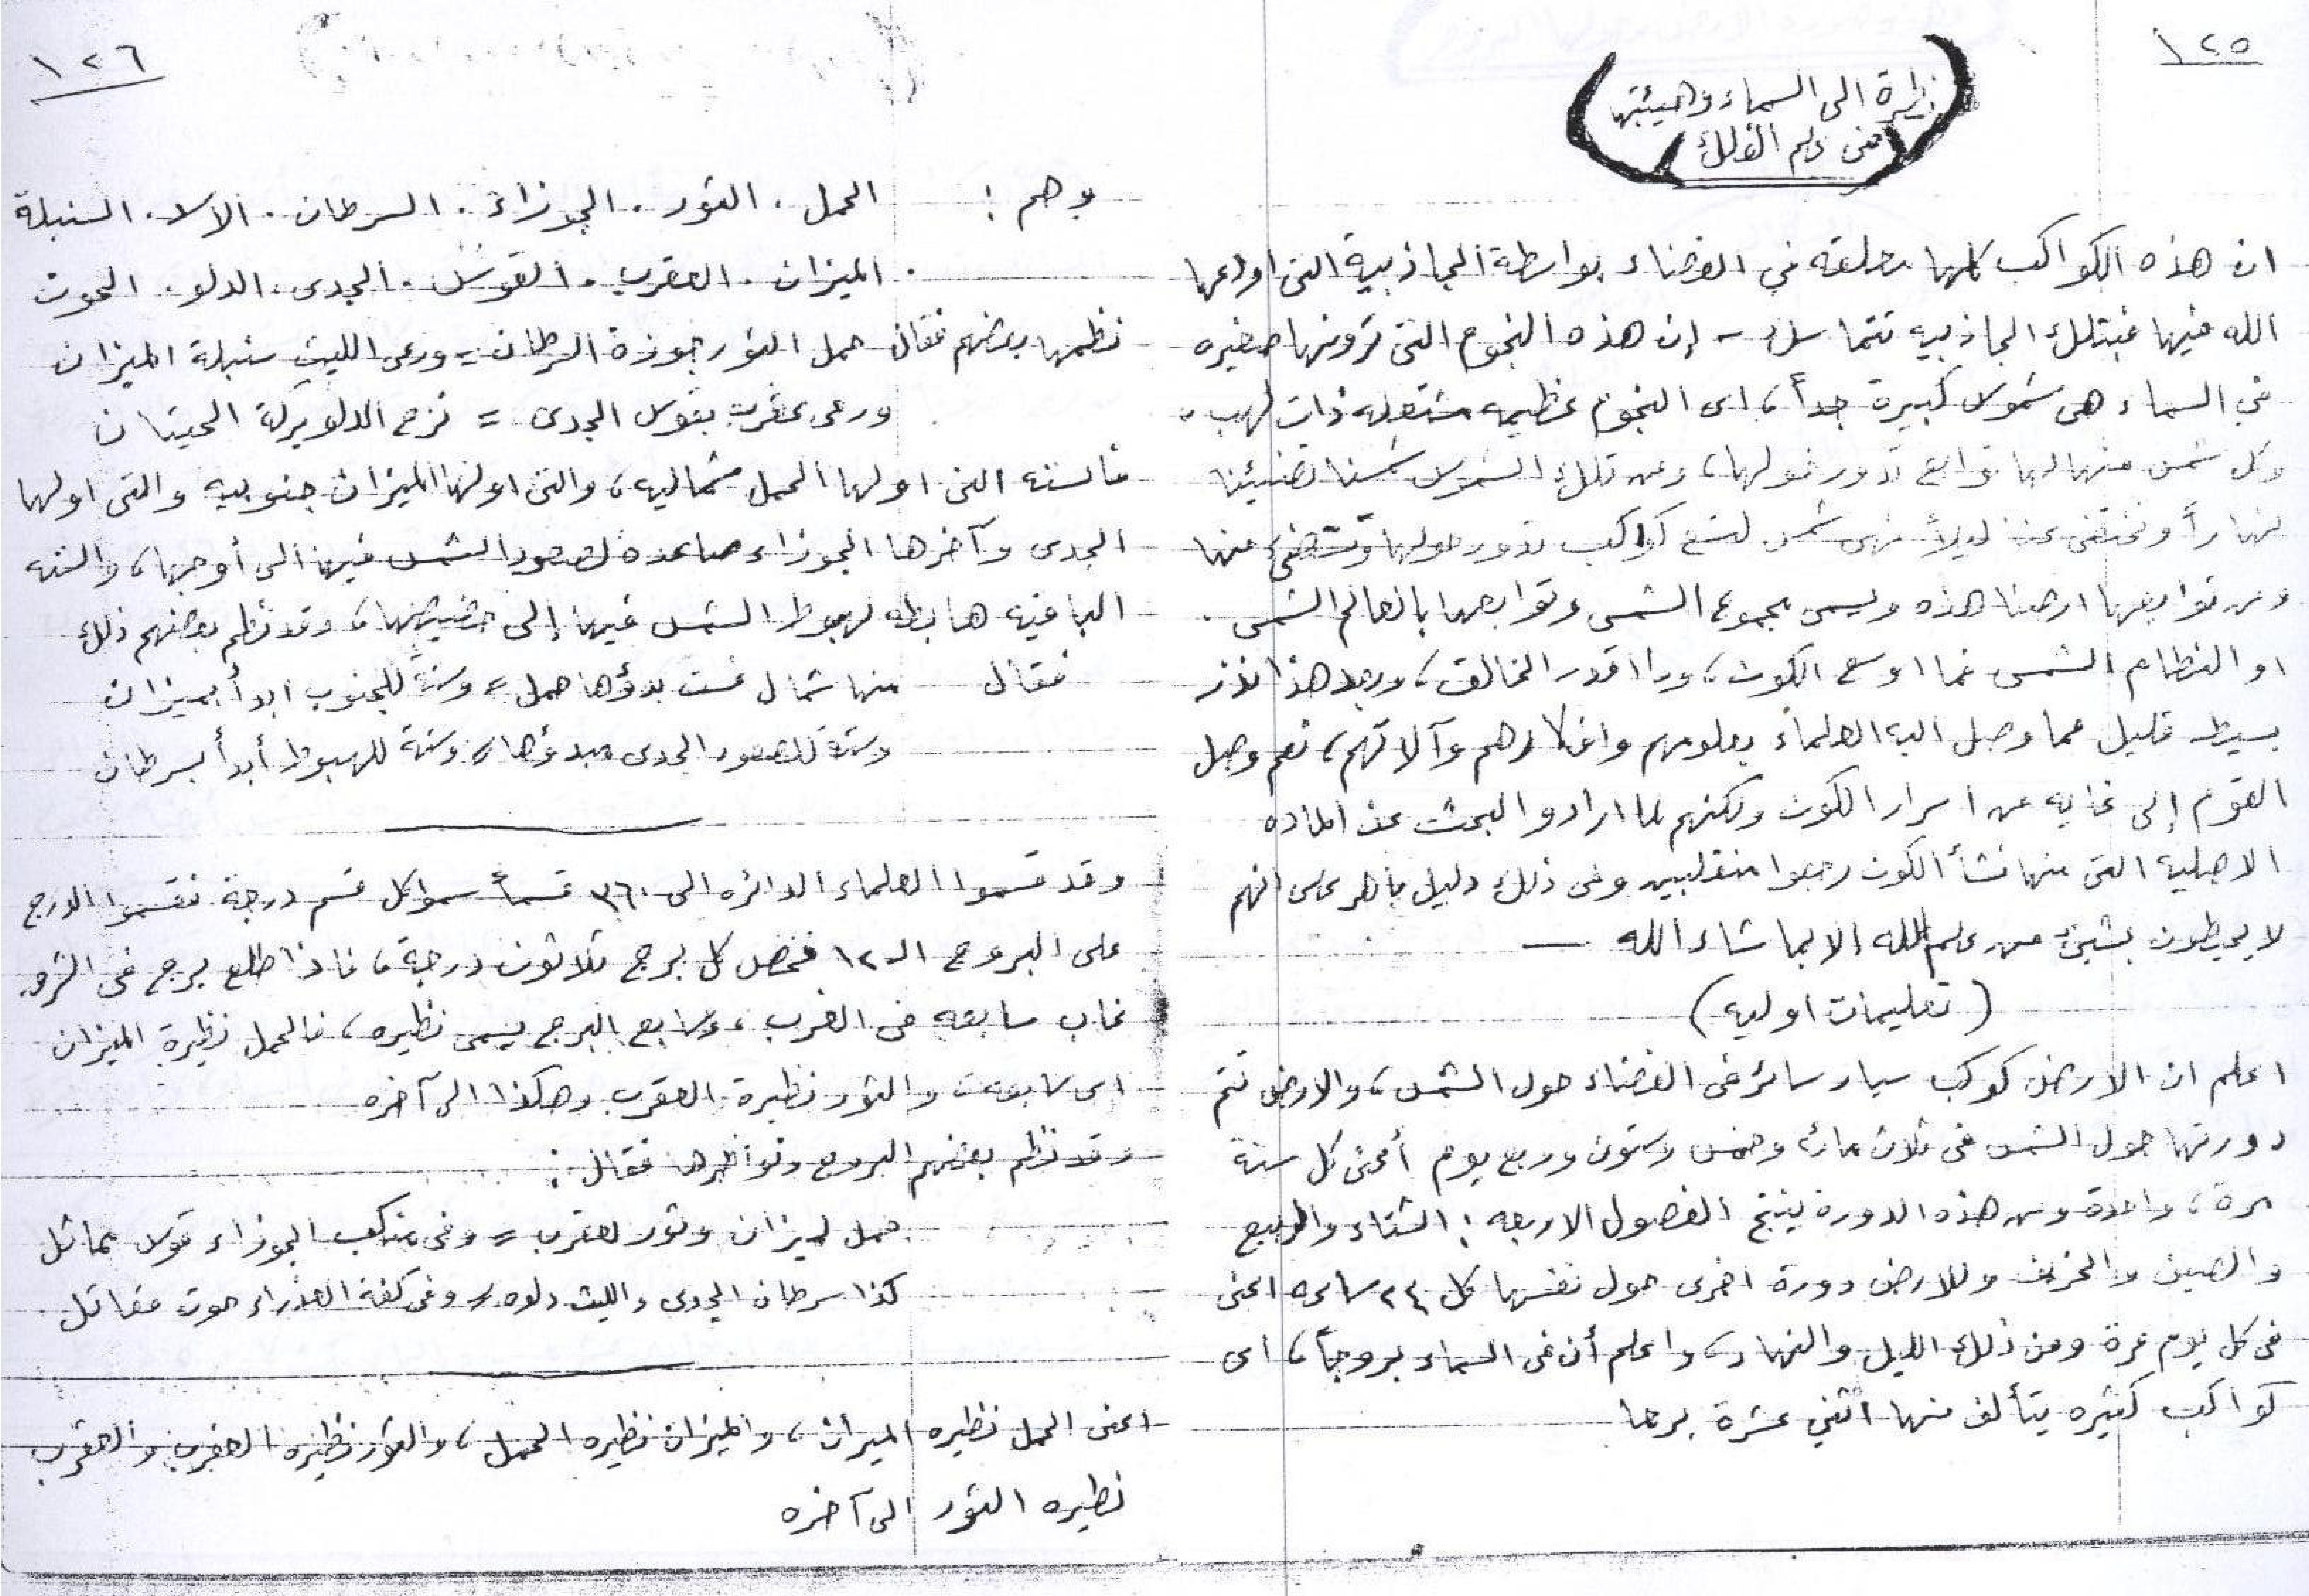 ١٢٥
نظرة الى السماء وهيئتها
من علم الفلك
ان هذه الكواكب كلها معلقه في الفضاء بواسطة الجاذبية التى اودعها
الله فيها فبتلك الجاذبيه تتماسك - إن هذه النجوم التى ترونها صغيره
في السماء هى شموس كبيرة جداً، اى النجوم عظيمه مشتعله ذات لهب،
وكل شمس منها لها توابع تدور حولها، ومن تلك الشموس شمسنا تضيئنا
نهاراً وتختفى عنا ليلاً فهى شمس لتسع كواكب تدور حولها وتستضىء منها
ومن توابعها ارضنا هذه ويسمى مجموع الشمس وتوابعها بالعالم الشمسى
او النظام الشمسى فما اوسع الكون، وما اقدر الخالق، وبعد هذا نذر
بسيط قليل مما وصل اليه العلماء بعلومهم وافكارهم وآلاتهم، نعم وصل
القوم إلى غايه من اسرار الكون ولكنهم لما ارادو البحث عن الماده
الاصلية التى منها نشأ الكون رجعوا منقلبين وفى ذلك دليل باهر على انهم
لا يحيطون بشيئ من علم الله الا بما شاء الله —
(تعليمات اوليه)
اعلم ان الارض كوكب سيار سائر فى الفضاء حول الشمس، والارض تتم
دورتها حول الشمس فى ثلاث مائه وخمس وستون وربع يوم أعنى كل سنة
مرة، واحدة ومن هذه الدورة ينتج الفصول الاربعه : الشتاء والربيع
والصيف والخريف وللارض دورة اخرى حول نفسها كل ٢٤ ساعه اعنى
فى كل يوم مرة ومن ذلك الليل والنهار، واعلم أن فى السماء بروجاً، اى
كواكب كثيره يتألف منها اثني عشرة برجا
١٢٦
وهم : الحمل . الثور . الجوزاء . السرطان . الاسد . السنبلة
. الميزان . العقرب . القوس . الجدى . الدلو . الحوت
نظمها بعضهم فقال حمل الثور جوزة السرطان = ورعى الليث سنبلة الميزان
ورمى عقرب بقوس الجدى = نزح الدلو بركة الحيتان
فالسته التى اولها الحمل شماليه، والتى اولها الميزان جنوبيه والتى اولها
الجدى وآخرها الجوزاء صاعده لصعود الشمس فيها الى أوجها، والسته
الباقيه هابطه لهبوط الشمس فيها إلى حضيضها، وقد نظم بعضهم ذلك
فقال منها شمال ست بدؤها حمل = وستة للجنوب ابدأ بميزان
وستة للصعود الجدى مبدؤها = وستة للهبوط أبدأ بسرطان
وقد قسموا العلماء الدائره الى ٣٦٠ قسماً سموا كل قسم درجة فقسموا الدرج
على البروج الـ١٢ فخص كل برج ثلاثون درجة، فاذا طلع برج فى الشرق
غاب سابعه فى الغرب، وسابع البرج يسمى نظيره، فالحمل نظيرة الميزان
اى سابعه والثور نظيرة العقرب وهكذا الى آخره
وقد نظم بعضهم البروج ونواظيرها فقال :
حمل لميزان وثور لعقرب = وفى منكب الجوزاء قوس مماثل
كذا سرطان الجدى والليث دلوه = وفى كفة العذراء حوت مقاتل
اعنى الحمل نظيره الميزان، والميزان نظيره الحمل، والثور نظيره العقرب والعقرب
نظيره الثور الى آخره